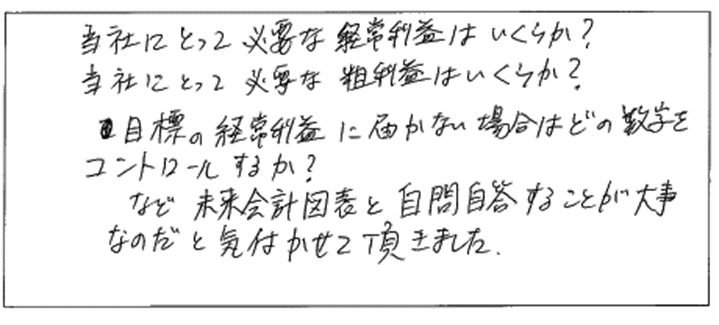 当社にとって必要な経常利益はいくらか?
当社にとって必要な粗利益はいくらか?
目標の経常利益に届かない場合はどの数字を
コントロールするか?
など 未来会計図表と自問自答することが大事
なのだと気付かせて頂きました.